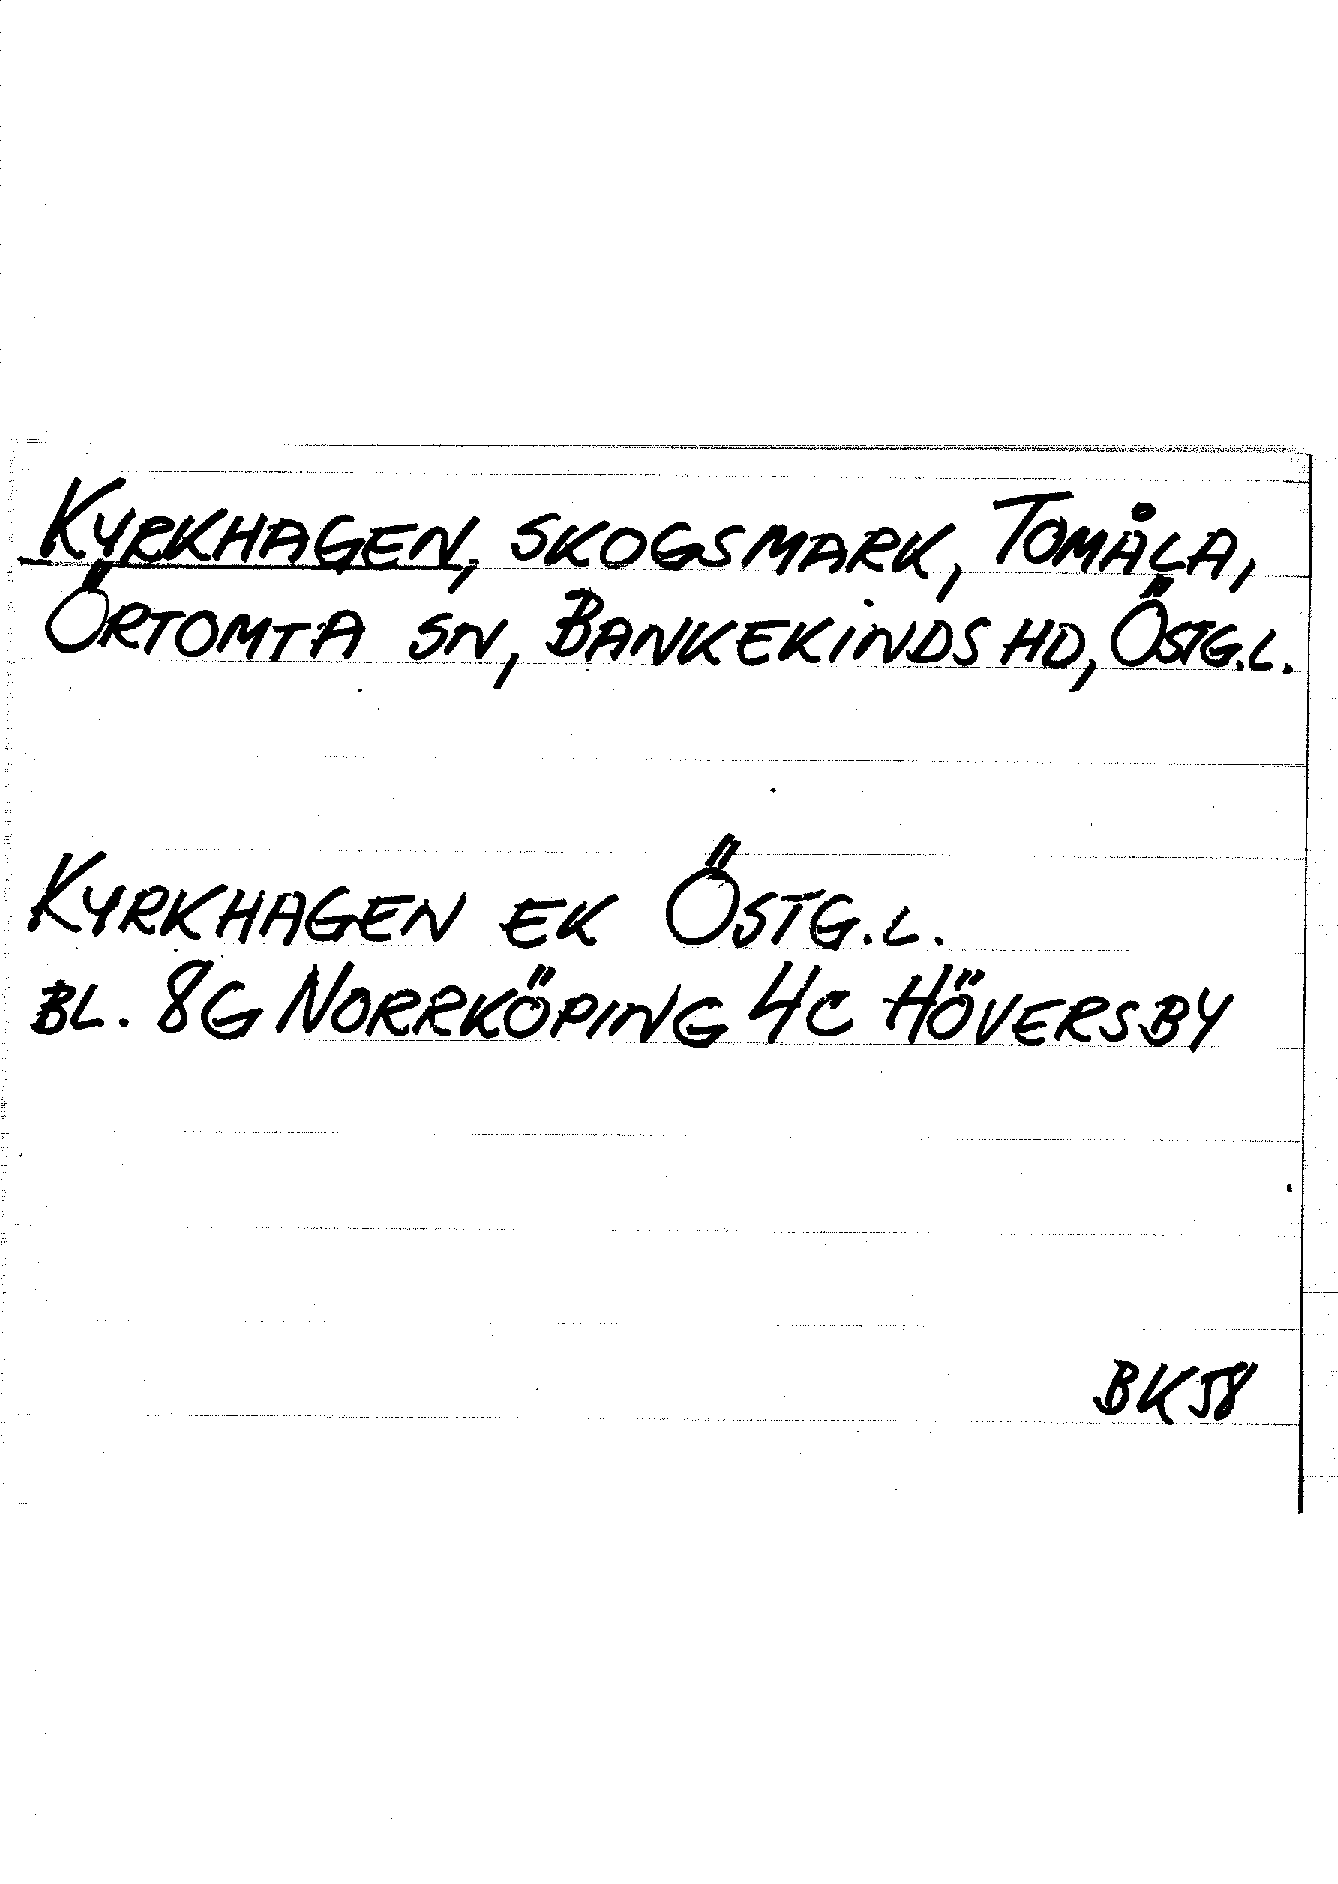 KYRKHAGEN, SKOGSMARK, TOMÅLA,
ÖRTOMTA SN, BANKEKINDS HD, ÖSTG.L.
KYRKHAGEN EK ÖSTG.L.
BL. 8G NORRKÖPING 4C HÖVERSBY
BK58